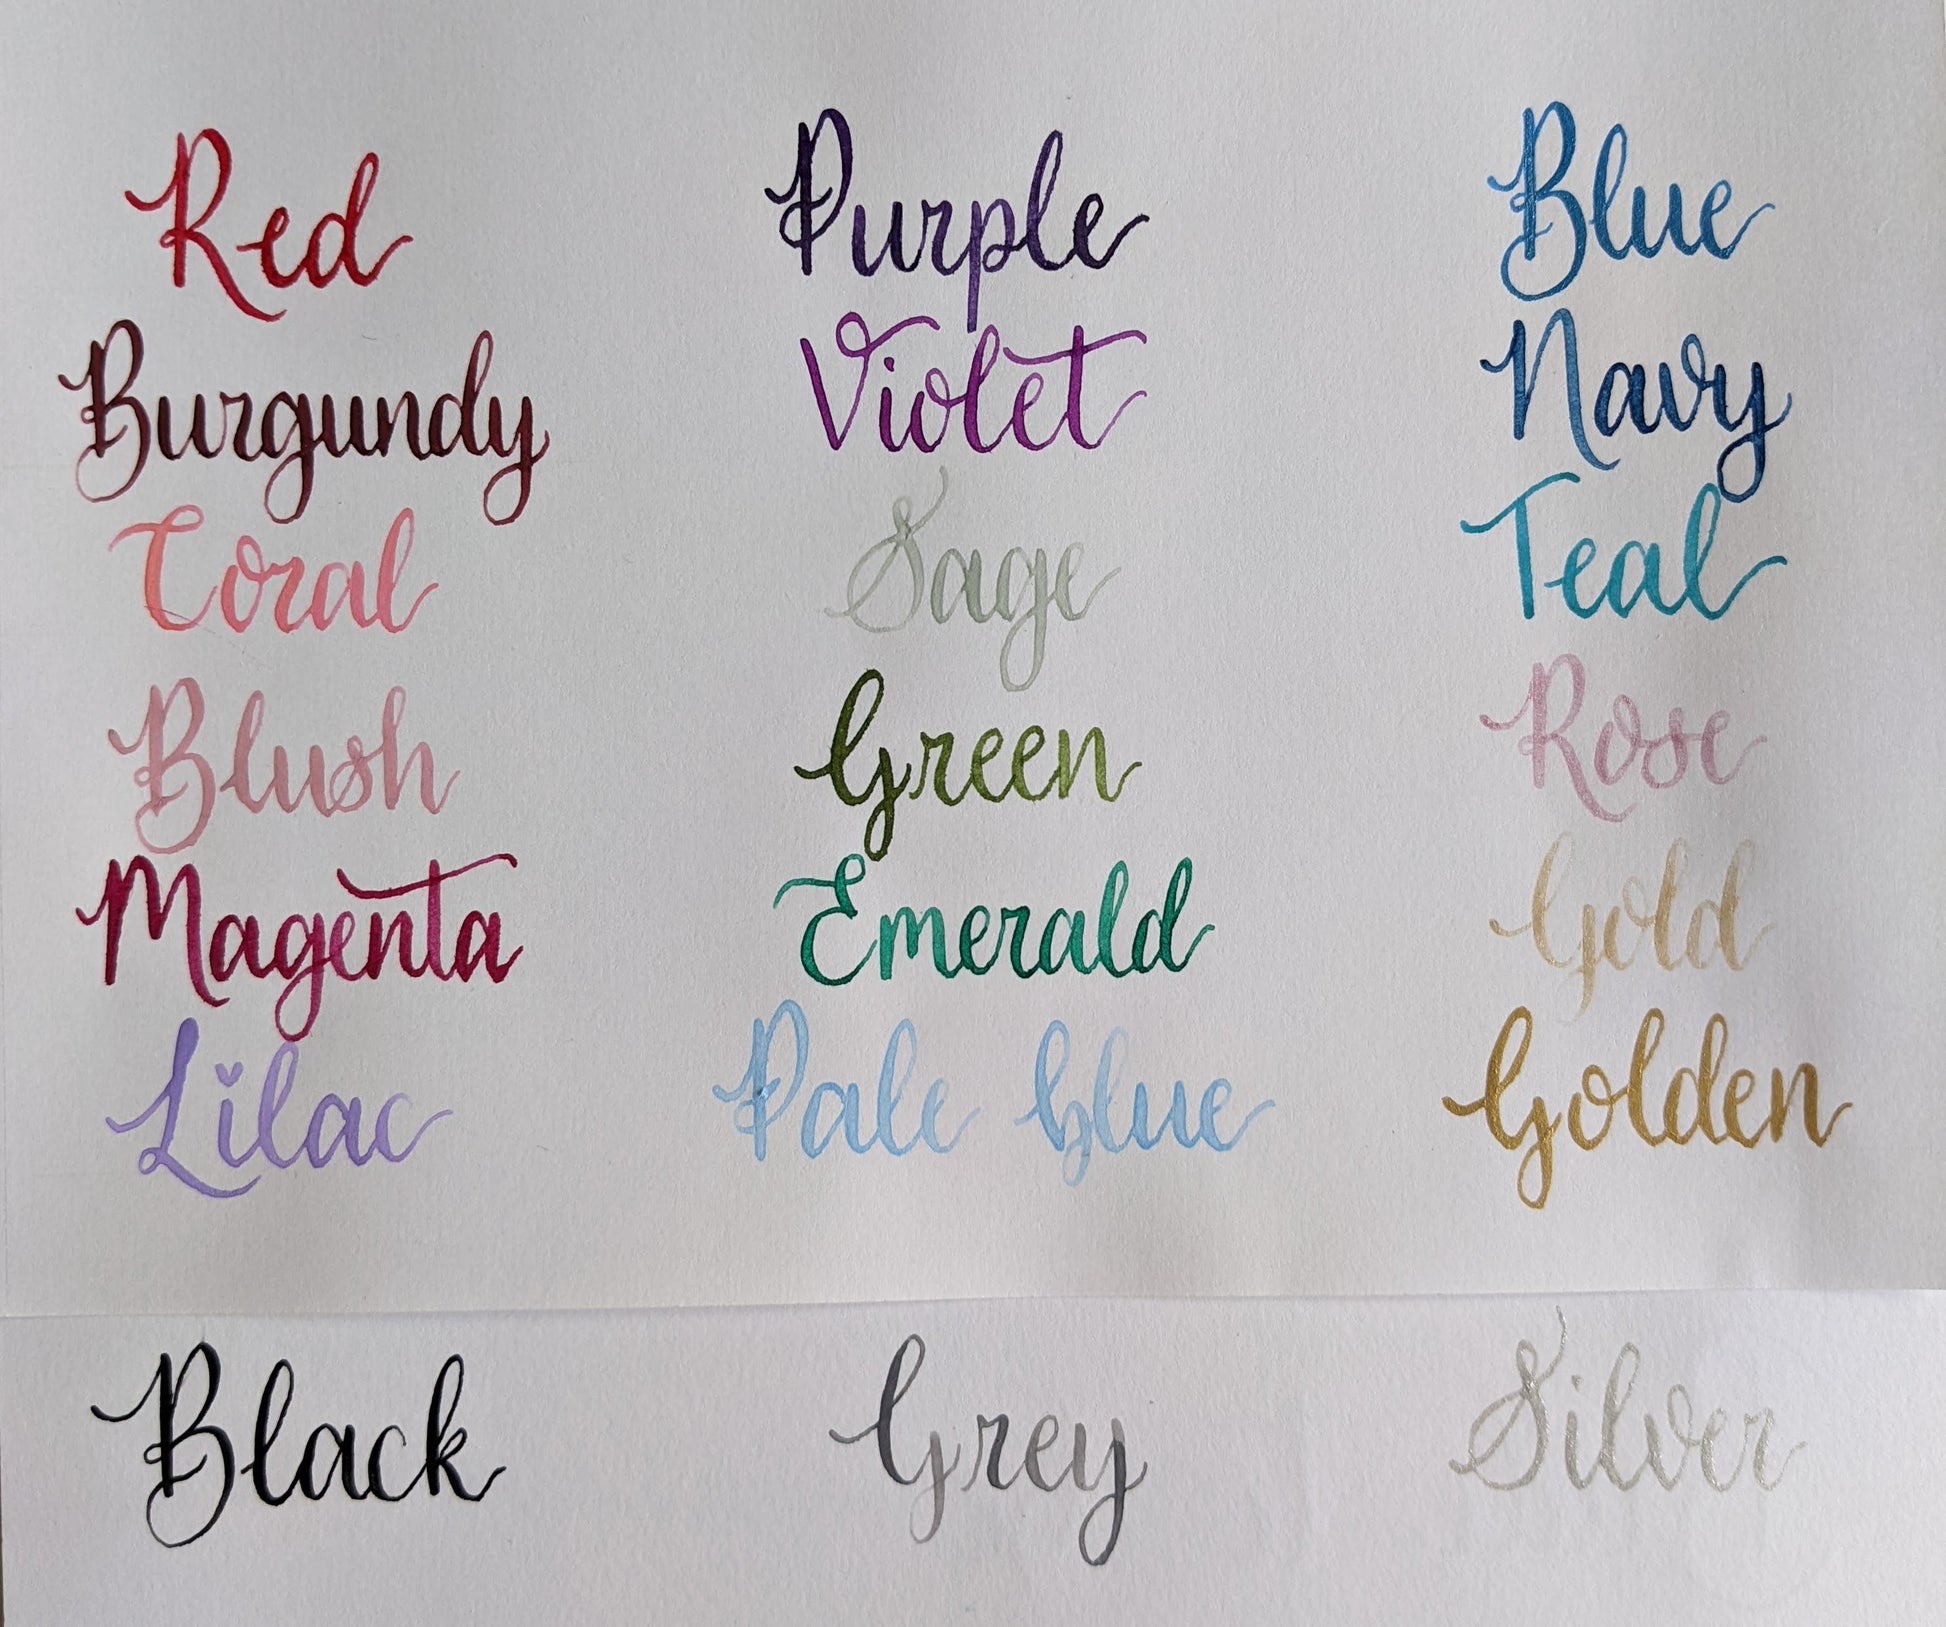 Red Purple Blue
Burgundy Violet Navy
Coral Sage Teal
Blush Green Rose
Magenta Emerald Gold
Lilac Pale blue Golden
Black Grey Silver